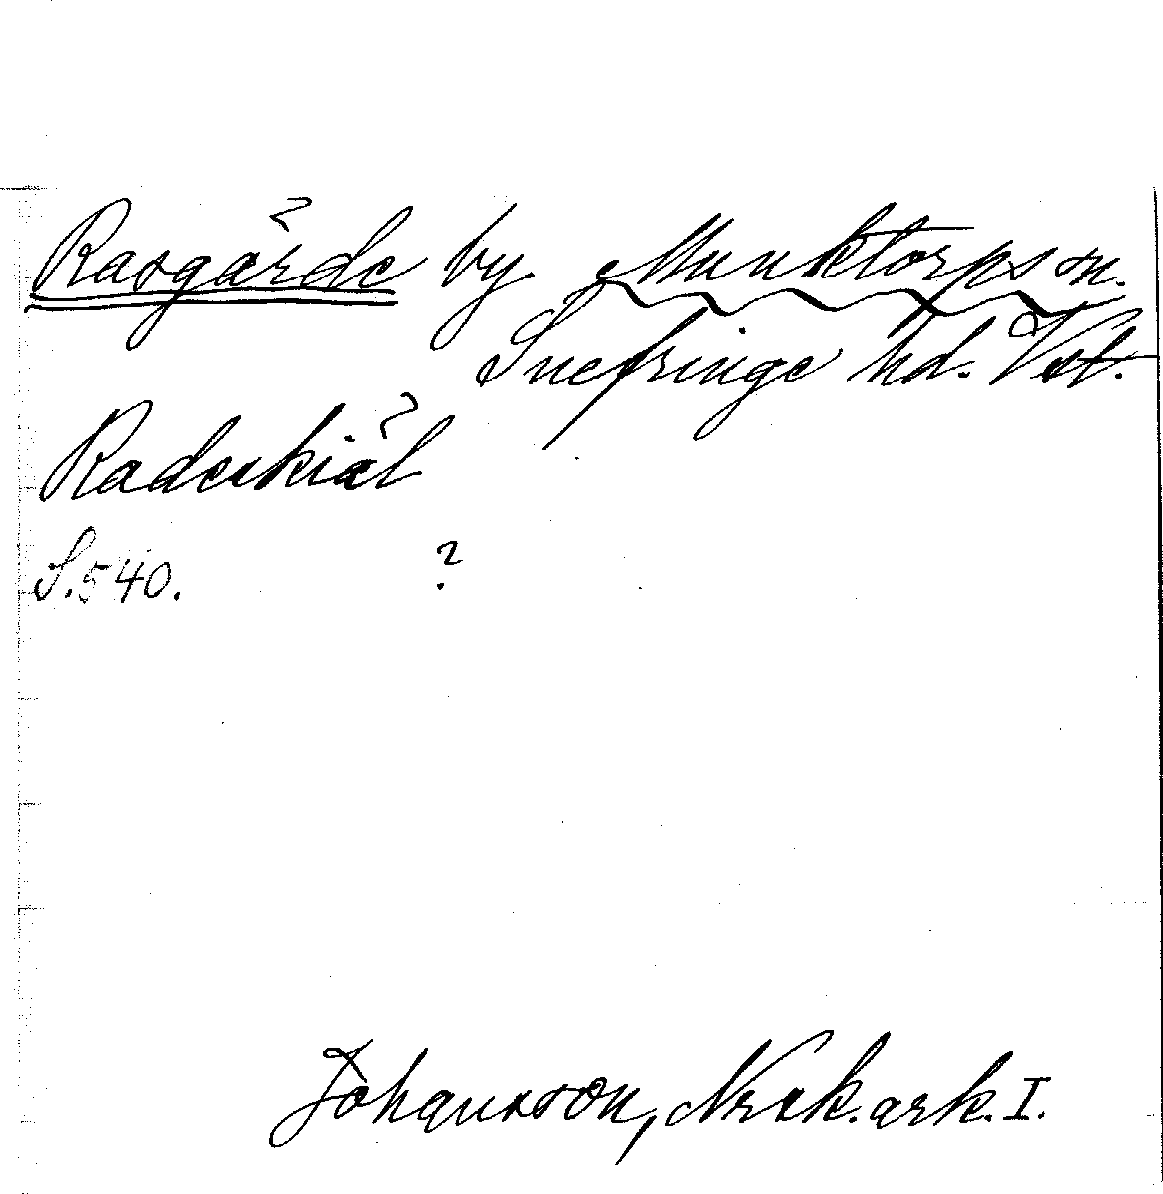 Rasgärde by Munktorps sn.
Snefringe hd. Vst.
Raderkiäl
S. 540. ?
Johansson, Nrrk. ark. I.